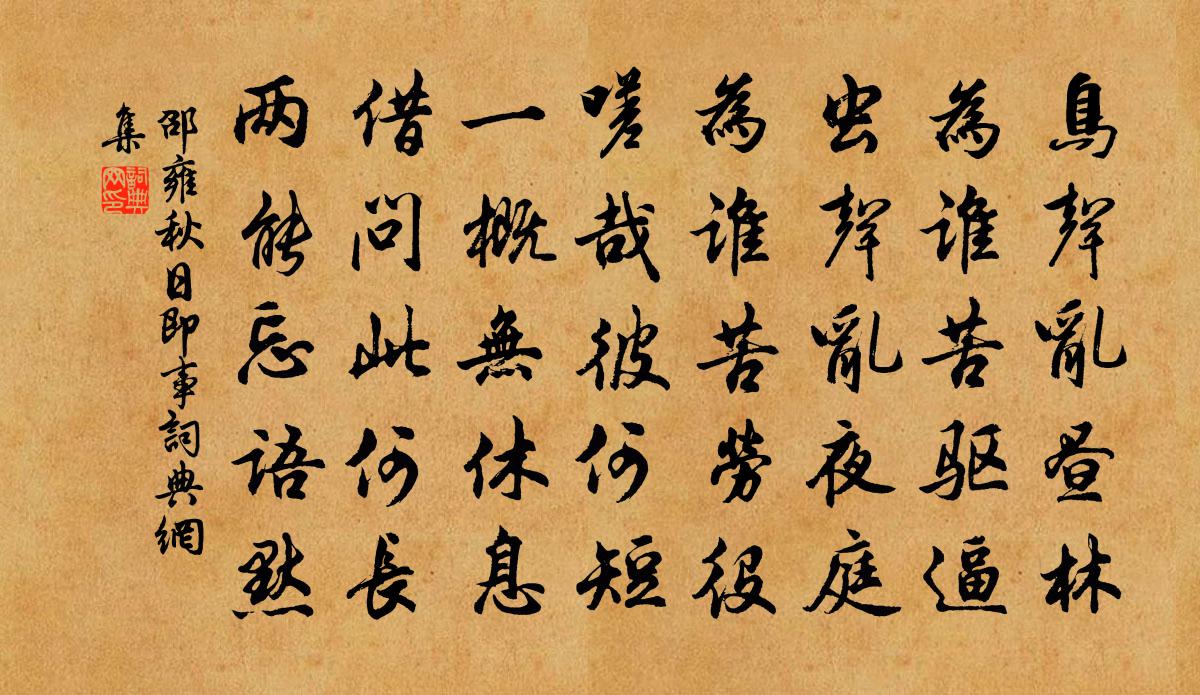 鳥聲亂晝林
為誰苦驅逼
虫聲亂夜庭
為誰苦勞役
嗟哉彼何短
一概無休息
借問此何長
两能忘語默
邵雍秋日即事詞典網
集
詞典
网印